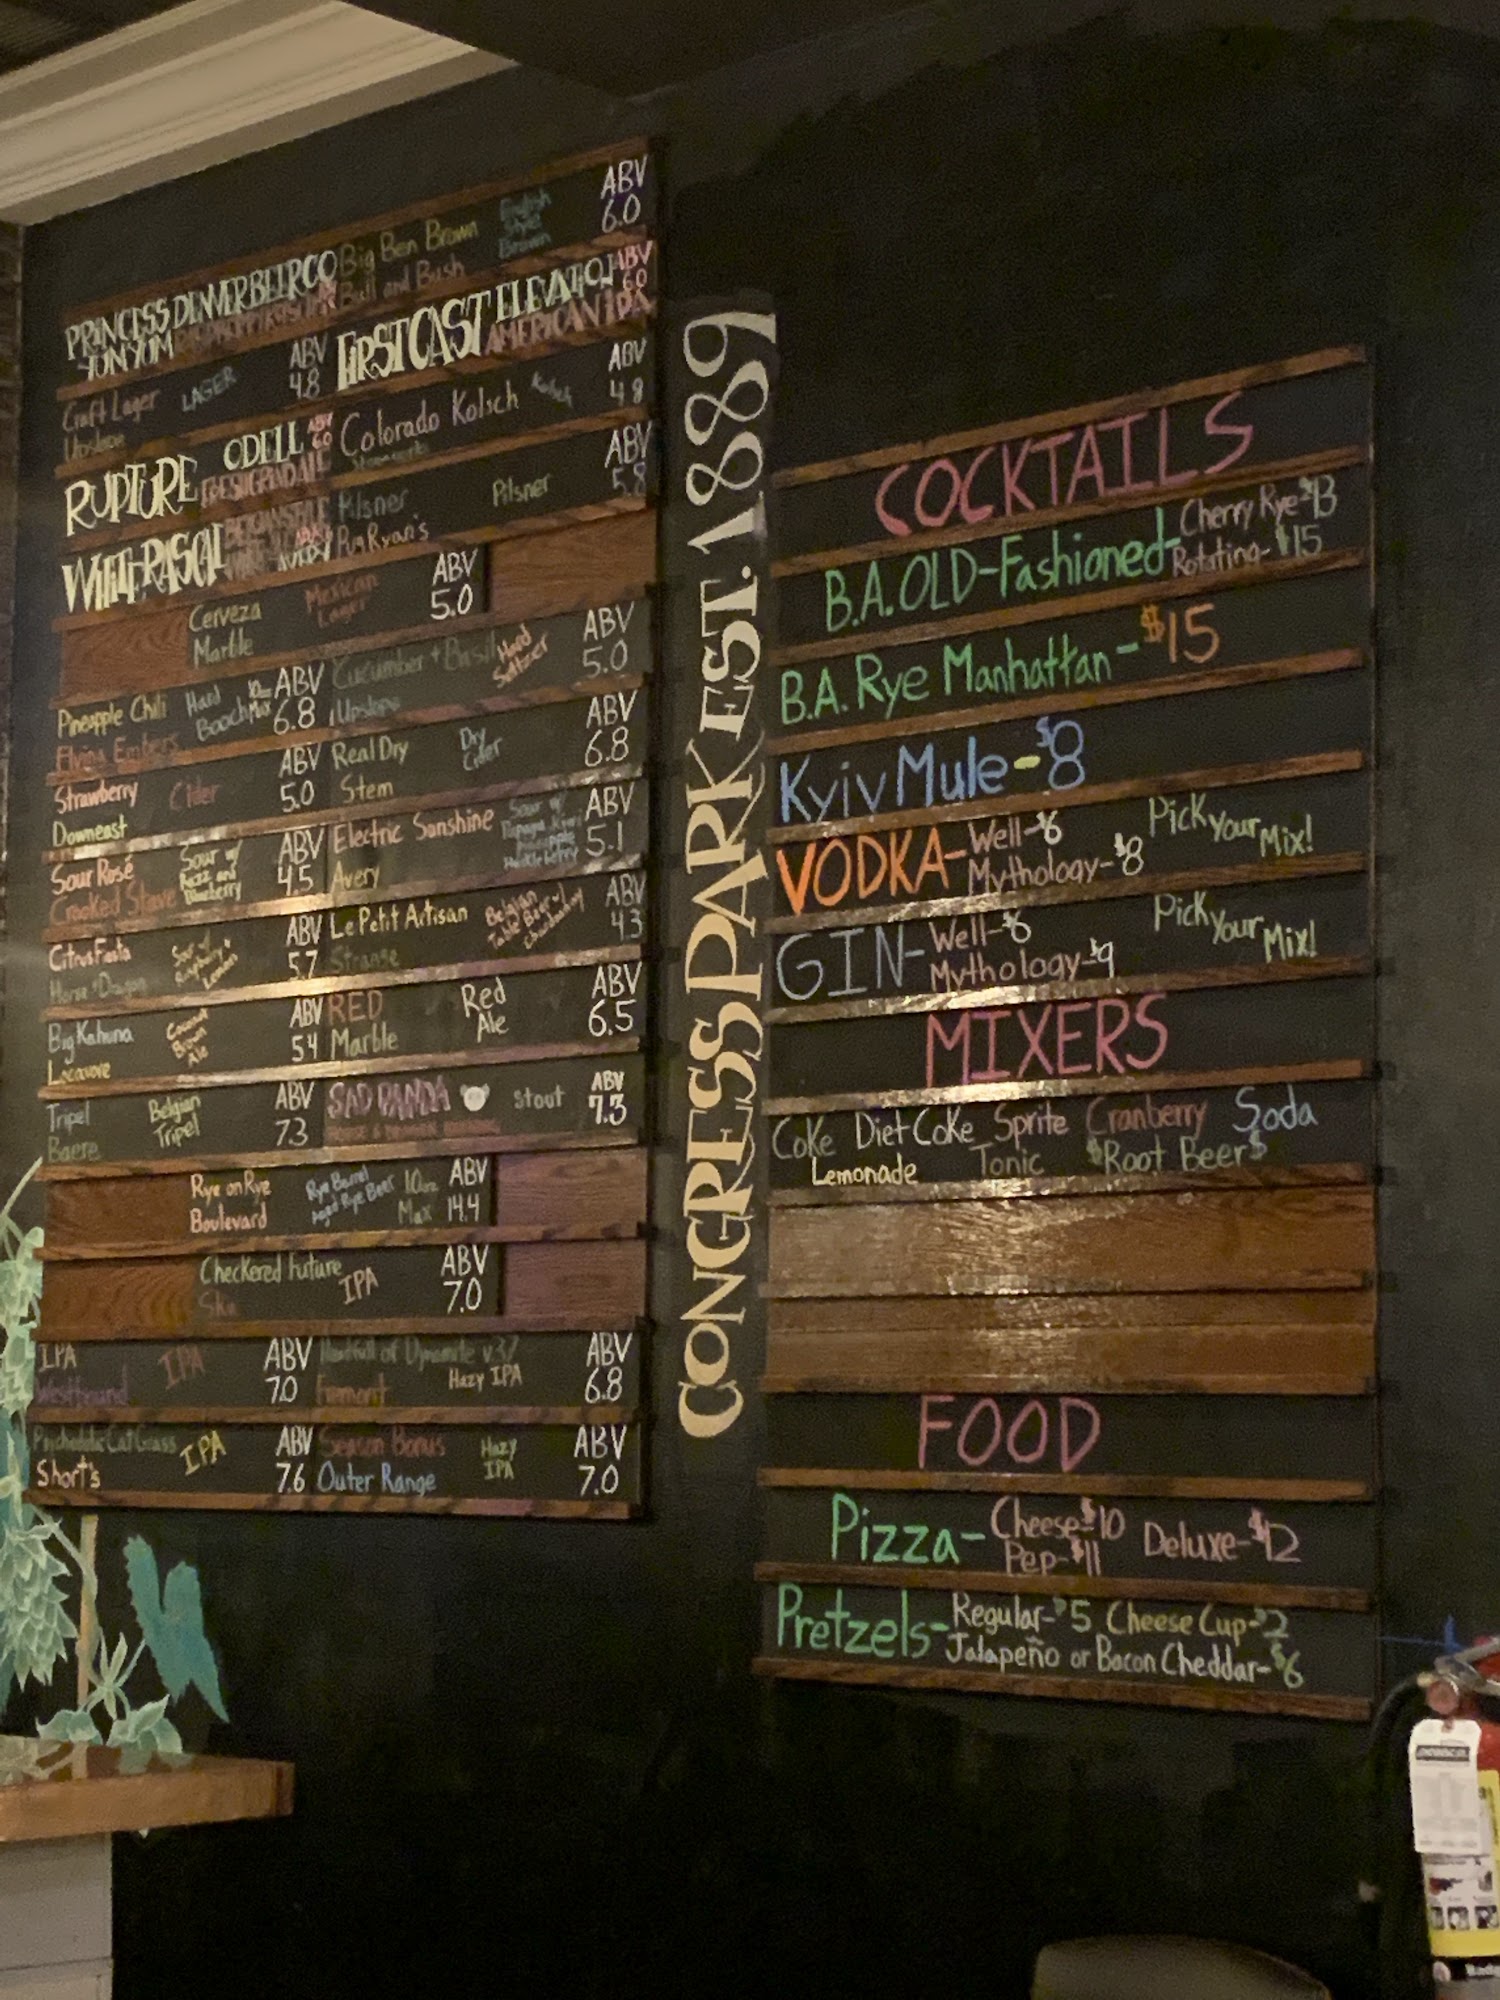 Big Ben Brown English Style Brown ABV 6.0
Bull and Bush
PRINCESS YUM YUM DENVER BEER CO
FIRST CAST ELEVATION AMERICAN IPA ABV 6.0
Craft Lager LAGER ABV 4.8
Upslope
Colorado Kolsch Kolsch ABV 4.8
RUPTURE ODELL ABV 6.0
FRESH GRIND ALE
Pilsner Pilsner ABV 5.8
Pug Ryan's
WHITE RASCAL BELGIAN STYLE AVERY
Cerveza Mexican Lager ABV 5.0
Marble
Pineapple Chili Hard Booch 10oz Max ABV 6.8
Flying Embers
Cucumber + Basil Hard Seltzer ABV 5.0
Upslope
Strawberry Cider ABV 5.0
Downeast
Real Dry Dry Cider ABV 6.8
Stem
Sour Rosé Sour w/ Razz and Blueberry ABV 4.5
Crooked Stave
Electric Sunshine Sour w/ ABV 5.1
Avery
Citrus Fiesta Sour w/ Raspberry + Lemon ABV 5.7
Horse + Dragon
Le Petit Artisan Belgian Table Beer w/ ABV 4.3
Strange
Big Kahuna Coconut Brown Ale ABV 5.4
Locavore
RED Red Ale ABV 6.5
Marble
Tripel Belgian Tripel ABV 7.3
Baere
SAD PANDA stout ABV 7.3
HORSE & DRAGON BREWING
Rye on Rye Rye Barrel Aged Rye Beer 10oz Max ABV 14.4
Boulevard
Checkered Future IPA ABV 7.0
Ska
IPA IPA ABV 7.0
Westbound
Handfull of Dynamite v37 Hazy IPA ABV 6.8
Fremont
Psychedelic Cat Grass IPA ABV 7.6
Short's
Season Bonus Hazy IPA ABV 7.0
Outer Range
CONGRESS PARK EST. 1889
COCKTAILS
B.A. OLD-Fashioned- Cherry Rye-$13
Rotating-$15
B.A. Rye Manhattan-$15
Kyiv Mule-$8
VODKA- Well-$6 Pick your Mix!
Mythology-$8
GIN- Well-$6 Pick your Mix!
Mythology-$9
MIXERS
Coke Diet Coke Sprite Cranberry Soda
Lemonade Tonic $Root Beer$
FOOD
Pizza- Cheese-$10 Deluxe-$12
Pep-$11
Pretzels- Regular-$5 Cheese Cup-$2
Jalapeño or Bacon Cheddar-$6